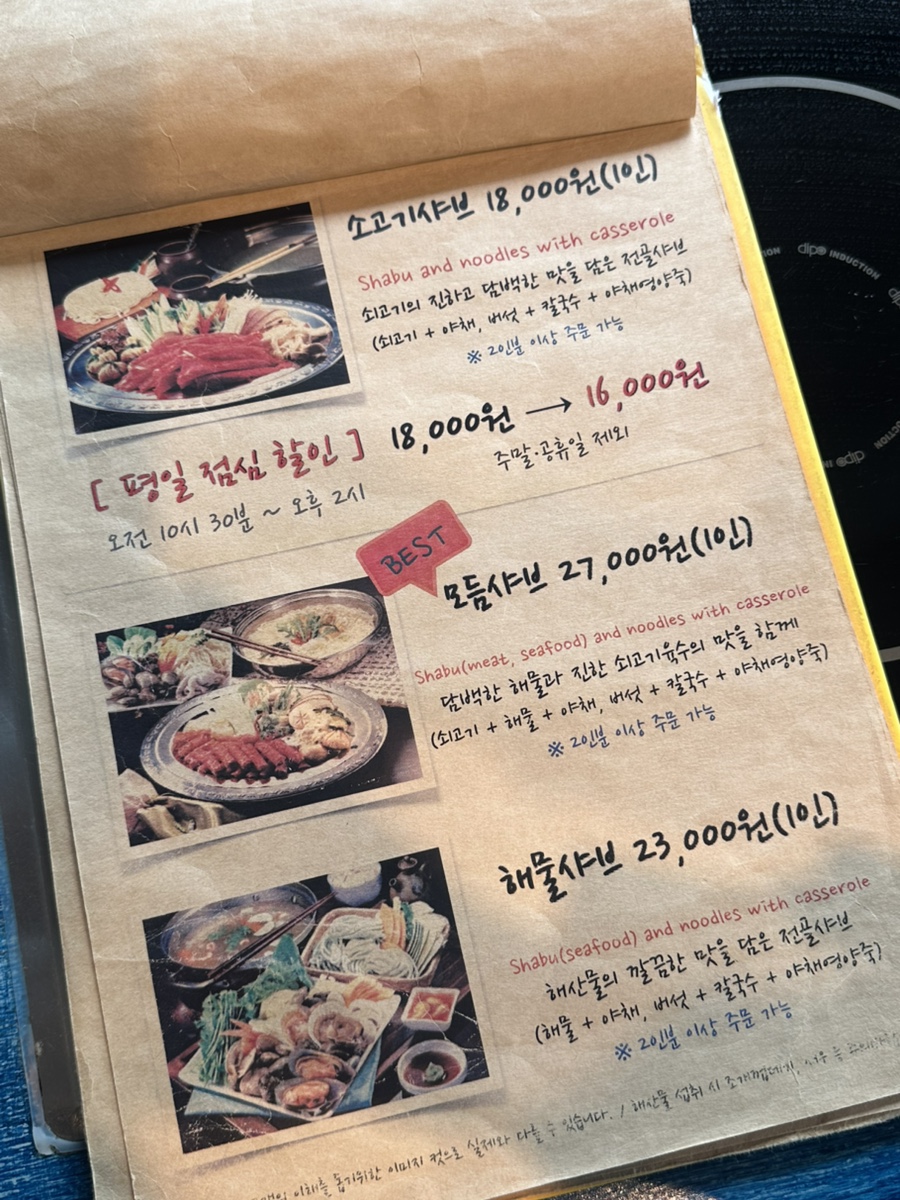 소고기샤브 18,000원(1인)
Shabu and noodles with casserole
쇠고기의 진하고 담백한 맛을 담은 전골샤브
(쇠고기 + 야채, 버섯 + 칼국수 + 야채영양죽)
※ 2인분 이상 주문 가능
[ 평일 점심 할인 ] 18,000원 → 16,000원
오전 10시 30분 ~ 오후 2시
주말·공휴일 제외
BEST
모듬샤브 27,000원(1인)
Shabu(meat, seafood) and noodles with casserole
담백한 해물과 진한 쇠고기육수의 맛을 함께
(쇠고기 + 해물 + 야채, 버섯 + 칼국수 + 야채영양죽)
※ 2인분 이상 주문 가능
해물샤브 23,000원(1인)
Shabu(seafood) and noodles with casserole
해산물의 깔끔한 맛을 담은 전골샤브
(해물 + 야채, 버섯 + 칼국수 + 야채영양죽)
※ 2인분 이상 주문 가능
이해를 돕기위한 이미지 컷으로 실제와 다를 수 있습니다. / 해산물 섭취 시 조개껍데기,
dipo INDUCTION